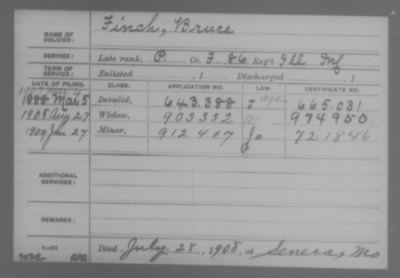 NAME OF SOLDIER: Finch, Bruce
SERVICE: Late rank, P. Co. F, 86 Reg't Ill Inf
TERM OF SERVICE: Enlisted , 1 Discharged , 1
DATE OF FILING. CLASS. APPLICATION NO. LAW. CERTIFICATE NO.
1888 Mar 5 Invalid, 643.388 665.031
1908 Aug 27 Widow, 903352 974950
1909 Jan 27 Minor, 912407 721846
ADDITIONAL SERVICES:
REMARKS:
Died July 28, 1908, at Seneca, Mo